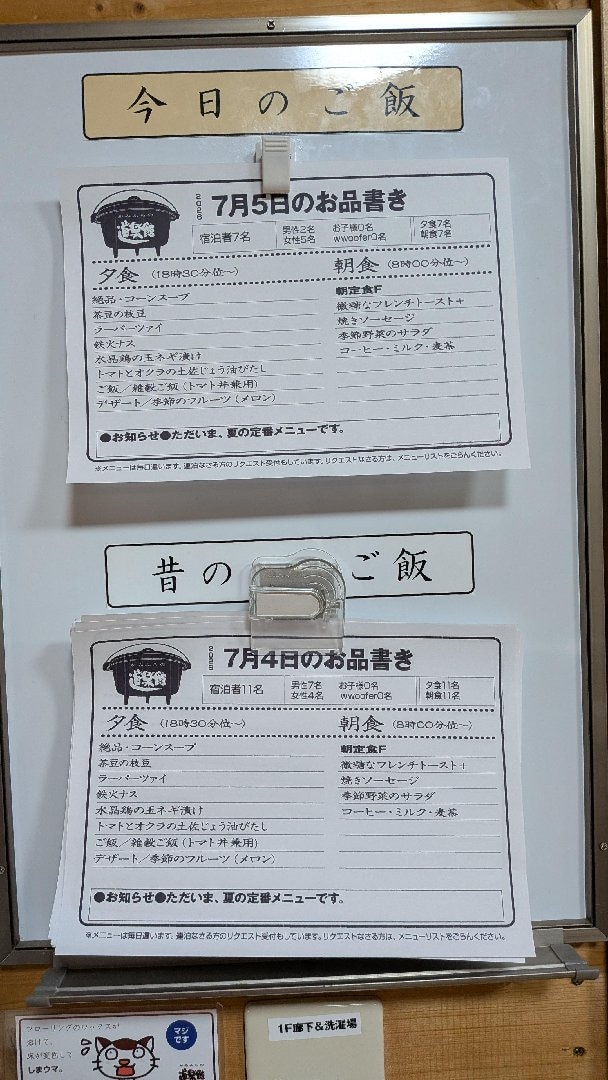 今日のご飯
2026 7月5日のお品書き
道楽食
宿泊者7名
男性2名 お子様0名 夕食7名
女性5名 wwoofer0名 朝食7名
夕食 (18時30分位～)
絶品・コーンスープ
茶豆の枝豆
ラーパーツァイ
鉄火ナス
水晶鶏の玉ネギ漬け
トマトとオクラの土佐じょう油びたし
ご飯／雑穀ご飯 (トマト丼兼用)
デザート／季節のフルーツ (メロン)
朝食 (8時00分位～)
朝定食F
微糖なフレンチトースト+
焼きソーセージ
季節野菜のサラダ
コーヒー・ミルク・麦茶
●お知らせ●ただいま、夏の定番メニューです。
※メニューは毎日違います。連泊なさる方のリクエスト受付もしています。リクエストなさる方は、メニューリストをごらんください。
昔の ご飯
2026 7月4日のお品書き
道楽食
宿泊者11名
男性7名 お子様0名 夕食11名
女性4名 wwoofer0名 朝食11名
夕食 (18時30分位～)
絶品・コーンスープ
茶豆の枝豆
ラーパーツァイ
鉄火ナス
水晶鶏の玉ネギ漬け
トマトとオクラの土佐じょう油びたし
ご飯／雑穀ご飯 (トマト丼兼用)
デザート／季節のフルーツ (メロン)
朝食 (8時00分位～)
朝定食F
微糖なフレンチトースト+
焼きソーセージ
季節野菜のサラダ
コーヒー・ミルク・麦茶
●お知らせ●ただいま、夏の定番メニューです。
※メニューは毎日違います。連泊なさる方のリクエスト受付もしています。リクエストなさる方は、メニューリストをごらんください。
フローリングのワックスが
溶けて、
床が変色して
しまウマ。
マジ
です
道楽食
1F廊下＆洗濯場